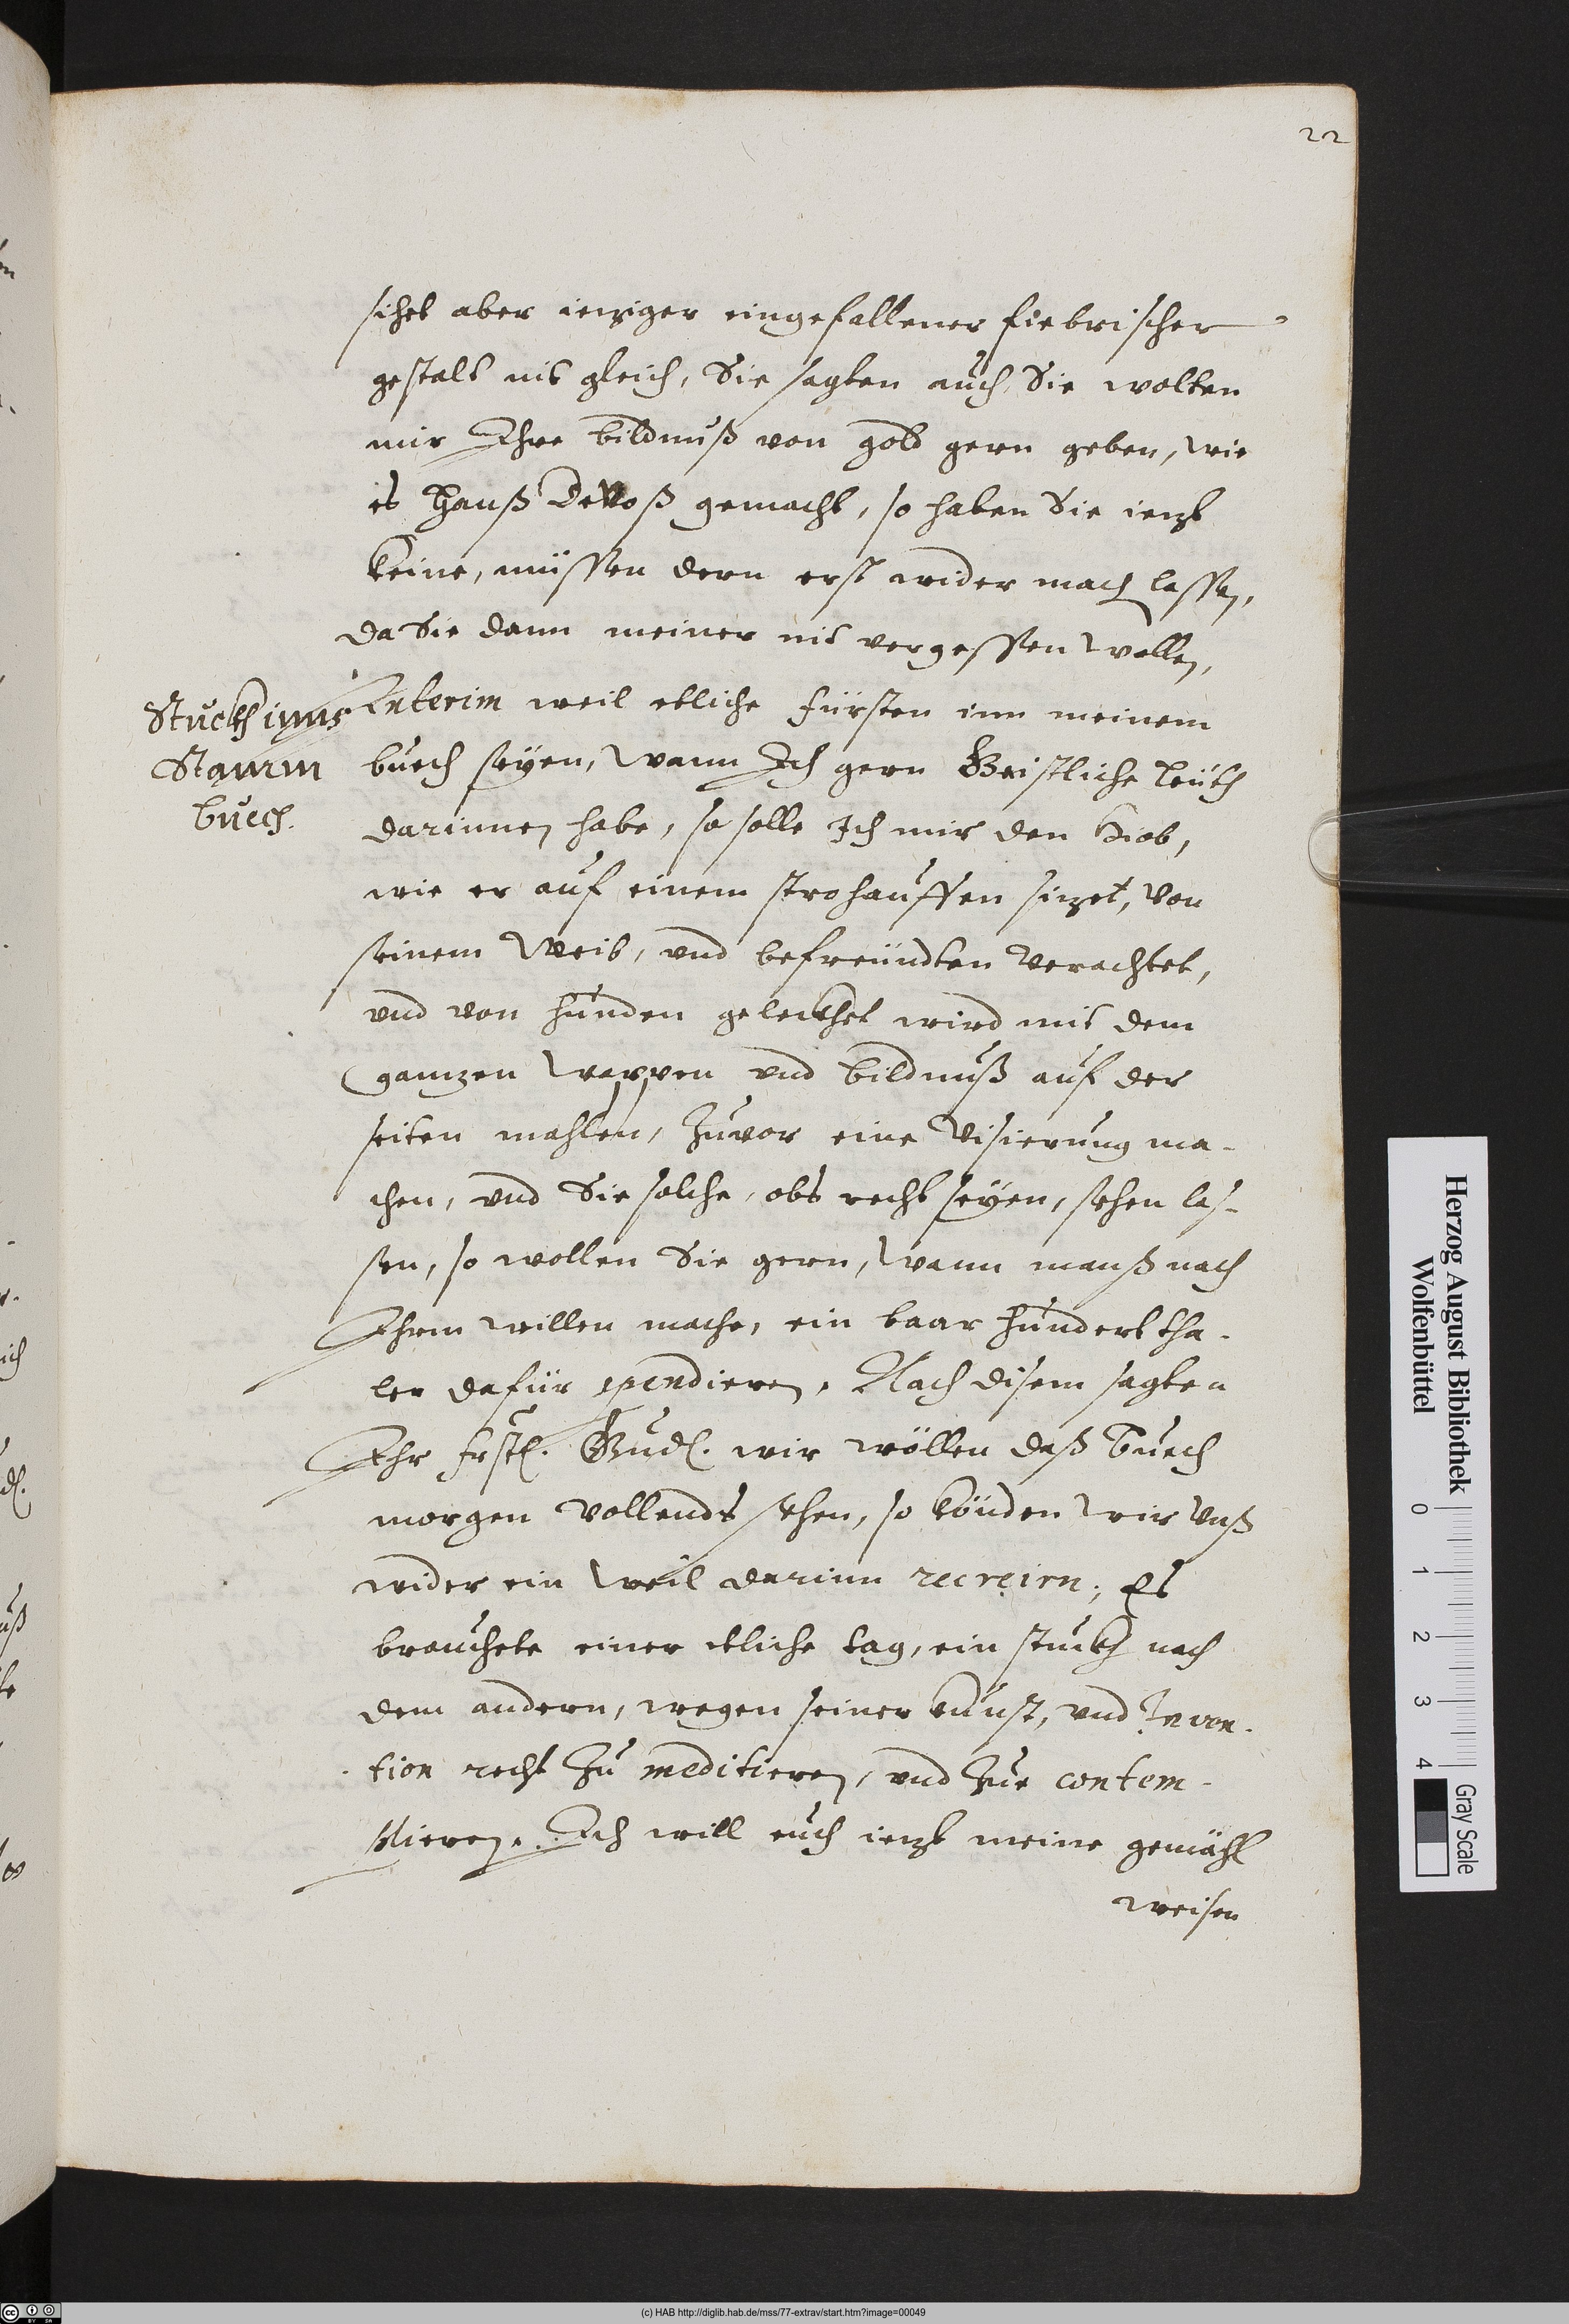 22
sihet aber ieziger eingefallener fiebrischer
gestalt nit gleich, Sie sagten auch, Sie wolten
mir Ihre bildnuß von gold gern geben, wie
es Hanß Devoß gemacht, so haben Sie iezt
keine, müssen dern erst wider mach lassen,
da Sie dann meiner nit vergessen wollen,
Stuckh inns
Stamm
buech.
Interim weil etliche fürsten inn meinem
buech seyen, wann Ich gern Geistliche leüth
darinnen habe, so solle Ich mir den Hiob,
wie er auf einem strohauffen sizet, von
seinem Weib, und befreündten verachtet,
und von hunden geleckhet wird mit dem
ganzen Wappen und bildnuß auf der
seiten mahlen, zuvor eine Visierung ma-
chen, und Sie solche, obs recht seyen, sehen las-
sen, so wollen Sie gern, wann manß nach
Ihrem willen mache, ein baar hundert tha-
ler dafür spendieren. Nach disem sagten
Ihr frstl. Gndl. wir wöllen daß buech
morgen vollends sehen, so könden wir unß
wider ein weil darinn recreirn; Es
brauchete einer etliche tag, ein stuckh nach
dem andern, wegen seiner kunst, und Inven-
tion recht zu meditieren, und zue contem-
plieren. Ich will euch iezt meine gemähl
weisen
Herzog August Bibliothek
Wolfenbüttel
0 1 2 3 4
Gray Scale
(c) HAB http://diglib.hab.de/mss/77-extrav/start.htm?image=00049